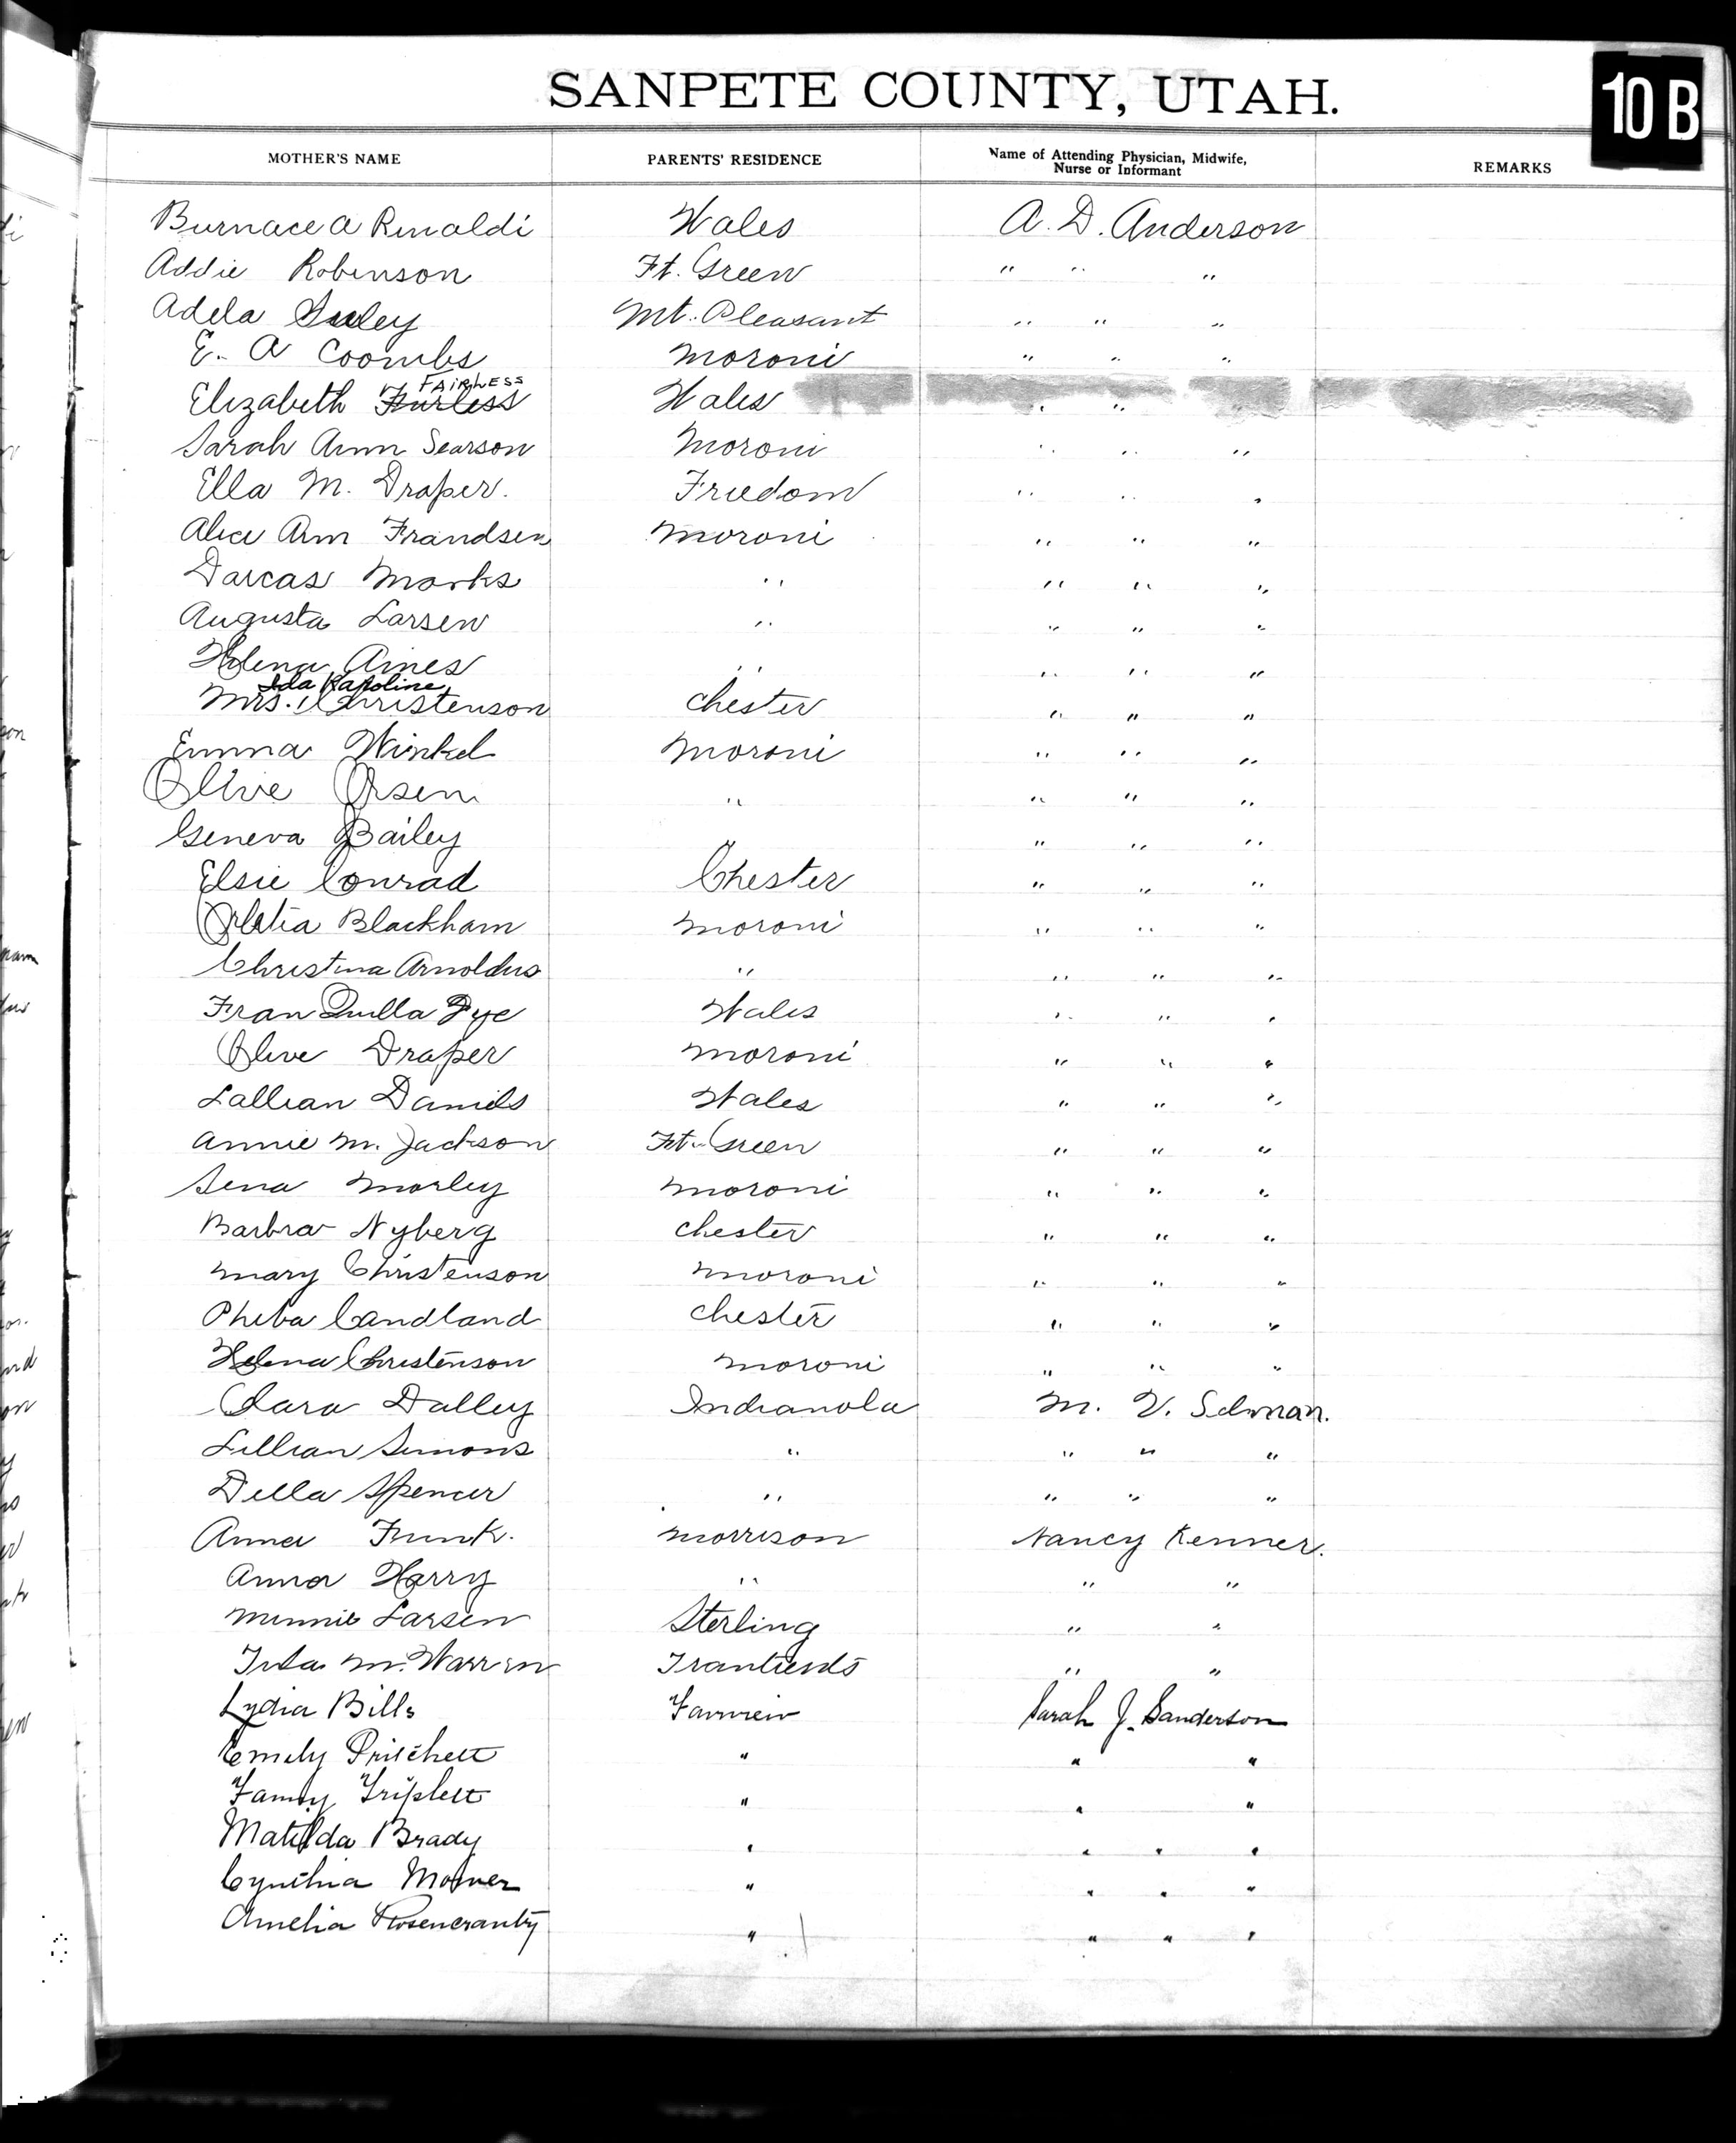 SANPETE COUNTY, UTAH.
10 B
MOTHER'S NAME PARENTS' RESIDENCE Name of Attending Physician, Midwife, Nurse or Informant REMARKS
Burnace A Rinaldi Wales A. D. Anderson
Addie Robinson Ft. Green " " "
Adela Seeley Mt. Pleasant " " "
E. A Coombs Moroni " " "
FAIRLESS
Elizabeth Furless Wales " "
Sarah Ann Searson Moroni " " "
Ella M. Draper. Freedom " " "
Alice Ann Frandsen Moroni " " "
Darcas Marks " " " "
Augusta Larsen " " " "
Helena Aines " " " "
Ida Karoline
Mrs. Christenson Chester " " "
Emma Winkel Moroni " " "
Olive Orsen " " " "
Geneva Bailey " " " "
Elsie Conrad Chester " " "
Orletia Blackham Moroni " " "
Christina Arnoldus " " " "
Fran Quilla Dye Wales " " "
Olive Draper Moroni " " "
Lallian Daniels Wales " " "
Annie M. Jackson Ft. Green " " "
Sena Morley Moroni " " "
Barbra Nyberg Chester " " "
Mary Christenson Moroni " " "
Pheba Candland Chester " " "
Helena Christenson Moroni " " "
Clara Dalley Indianola M. V. Selman.
Lillian Simons " " " "
Della Spencer " " " "
Anna Funk. Morrison Nancy Kenner.
Anna Harry " " "
Minnie Larsen Sterling " "
M. Warren " "
Lydia Bills Fairview Sarah J. Sanderson
Emily Pritchett " " "
Fanny Triplett " " "
Matilda Brady " " " "
Cynthia Mower " " " "
Amelia Rosencrantz " " " "